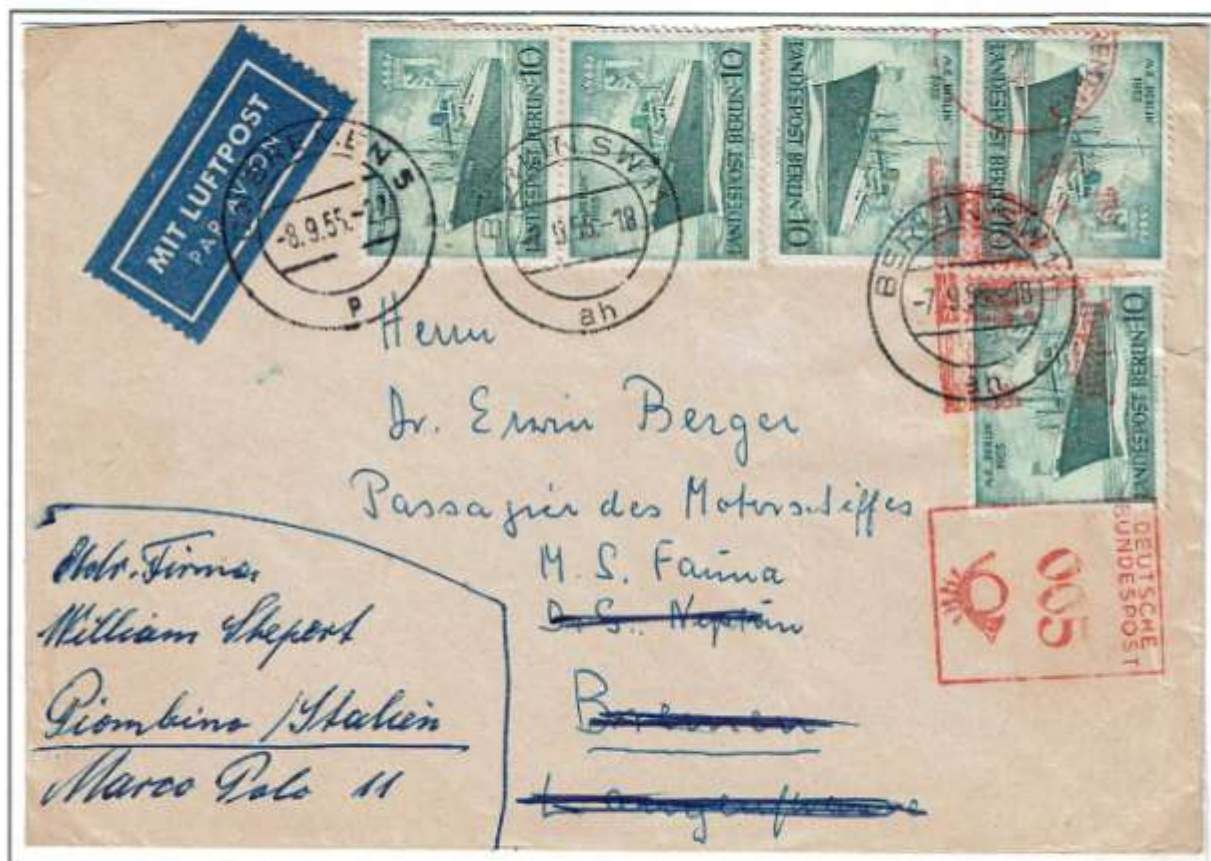 MIT LUFTPOST
PAR AVION
10 LANDESPOST BERLIN
10 LANDESPOST BERLIN
10 LANDESPOST BERLIN
M.S. BERLIN
1955
10 LANDESPOST BERLIN
M.S. BERLIN
1955
10 LANDESPOST BERLIN
M.S. BERLIN
1955
-8.9.55.-
p
BERLIN SW 11
9.55.-18
ah
BERLIN SW 11
-7.9.55.-18
ah
DEUTSCHE
BUNDESPOST
005
Herrn
Dr. Erwin Berger
Passagier des Motorschiffes
M. S. Fauna
D. S. Neptun
Bremen
Adr. Firma
William
Piombino / Italien
Marco Polo 11